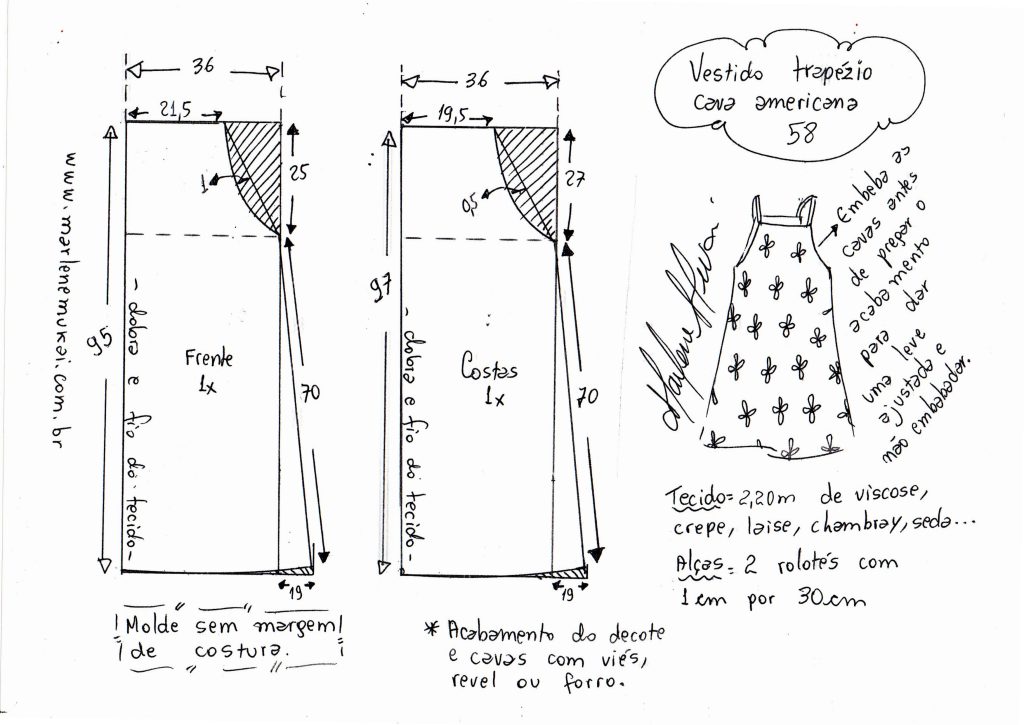 www.marlenemukai.com.br
36
21,5
25
1
95
- dobra e fio do tecido -
Frente
1x
70
19
Molde sem margem
de costura.
36
19,5
27
0,5
97
- dobra e fio do tecido -
Costas
1x
70
19
* Acabamento do decote
e cavas com viés,
revel ou forro.
Vestido trapézio
cava americana
58
Embeba as
cavas antes
de pregar o
acabamento
para dar
uma leve
ajustada e
não embabadar.
Marlene Mukai
Tecido = 2,20m de viscose,
crepe, laise, chambray, seda...
Alças = 2 rolotés com
1cm por 30cm